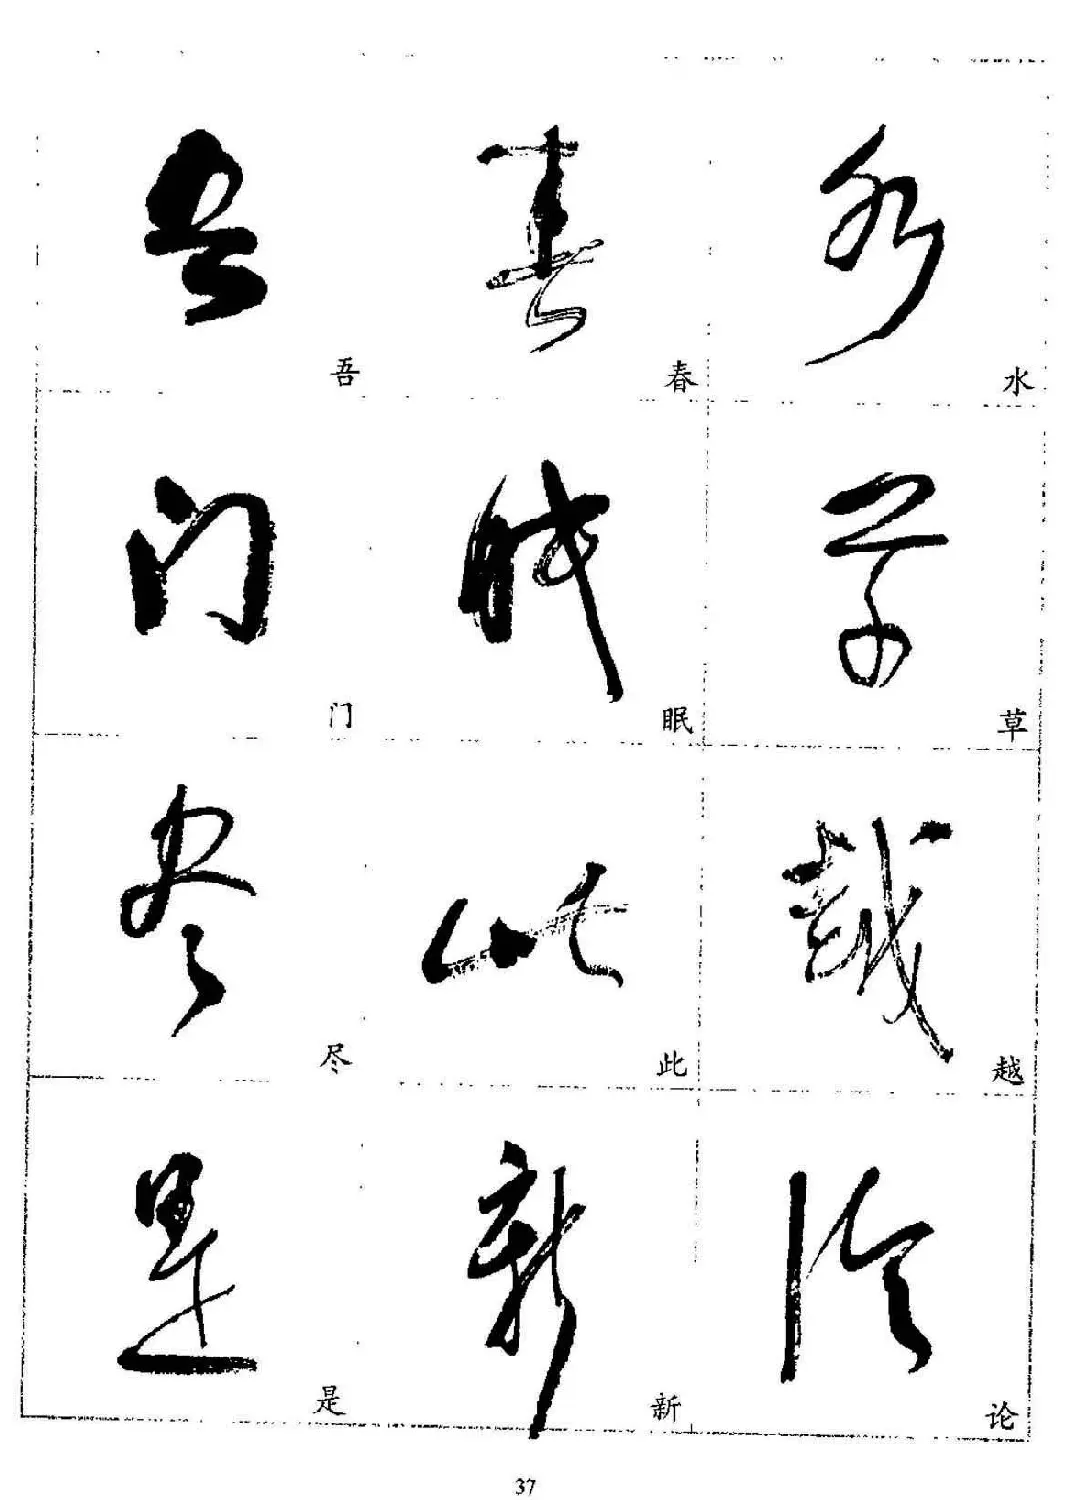 吾 春 水
门 眠 草
尽 此 越
是 新 论
37